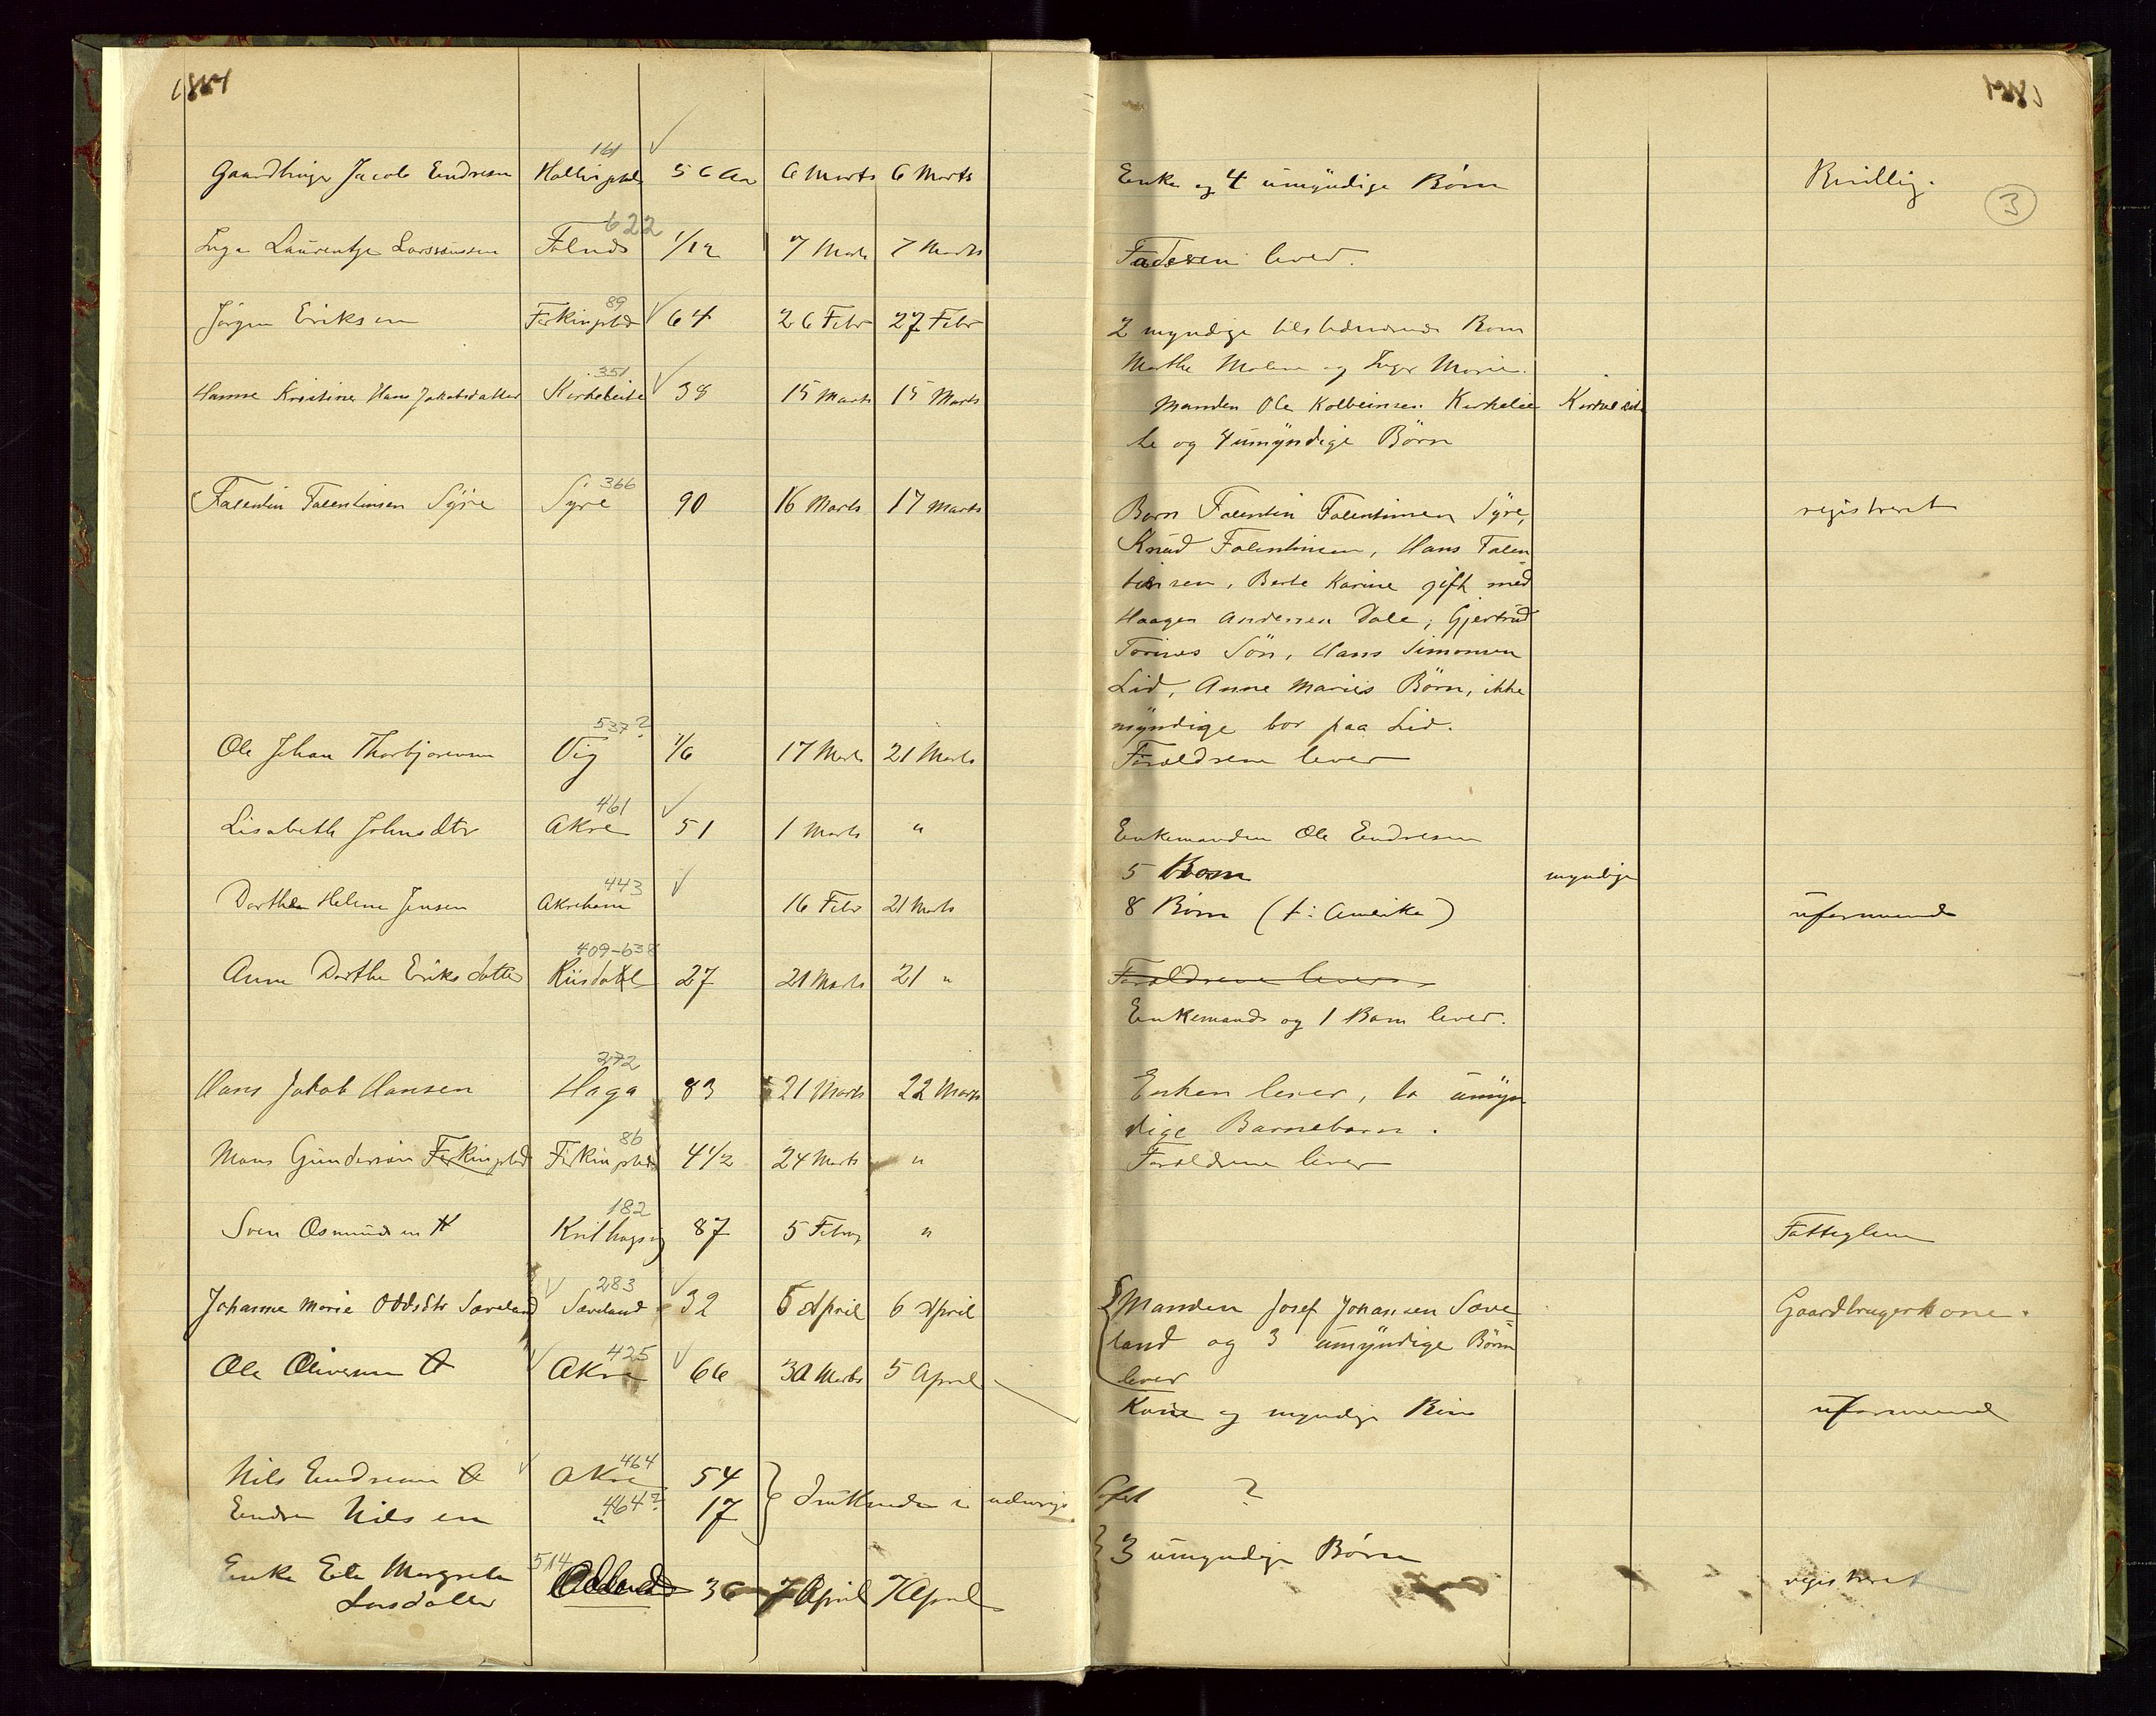 1884
1881
3
161
Gaardbruger Jacob Endresen Hallingstad 56 Aar 6 Marts 6 Marts Enke og 4 umÿndige Börn
622
Inga Laurentse Falnes 1/12 7 Marts 7 Marts Faderen lever.
89
Jörgen Eriksen Ferkingstad 64 26 Febr 27 Febr 2 myndige tilstedeværende Born
Marthe Malene og Inger Marie.
351
Hanne Kristine Hans Jakobsdatter Kirkeleite 38 15 Marts 15 Marts Manden Ole Kolbeinsen Kirkelei
te og 4 umÿndige Börn
366
Falentin Falentinsen Sÿre Syre 90 16 Marts 17 Marts Born Falentin Falentinsen Sÿre, registreret
Knud Falentinsen, Hans Falen
tinsen, Berte Karine gift med
Haagen Andersen Dale, Gjertrud
Torines Sön, Hans Simonsen
Lid, Anne Maries Börn, ikke
mÿndige bor paa Lid.
537?
Ole Johan Thorbjørnsen Vig 1/6 17 Marts 21 Marts Forældrene lever
461
Lisabeth Johnsdtr Akre 51 1 Marts " Enkemanden Ole Endresen
5 Born myndige
443
Dorthea Helene Jensen Akrehavn 16 Febr 21 Marts 8 Börn (i Amerika) uformuende
409-638
Anne Dorthe Eriksdatter Riisdahl 27 21 Marts 21 " Forældrene lever
Enkemand og 1 Barn lever.
272
Hans Jakob Hansen Haga 83 21 Marts 22 Marts Enken lever, to umÿn
dige Barnebarn.
86
Mons Gundersen Ferkingstad Ferkingstad 4 1/2 24 Marts " Forældrene lever
182
Sven Osmundsen Kvilhaugsvig 87 5 Febr " Fattiglem
283
Johanne Marie Oddsdtr Saveland Saveland 32 5 April 6 April Manden Josef Johansen Save-
land og 3 umÿndige Börn
lever
Gaardbrugerkone.
425
Ole Oliversen Akre 66 30 Marts 5 April Kone og myndige Börn uformuende
464
Nils Endresen Akre 54
464?
Endre Nilsen " 17 Druknede i ?
514
Enke Eli Margrete
Larsdatter 36 7 April 7 April 3 umyndige Börn registreret